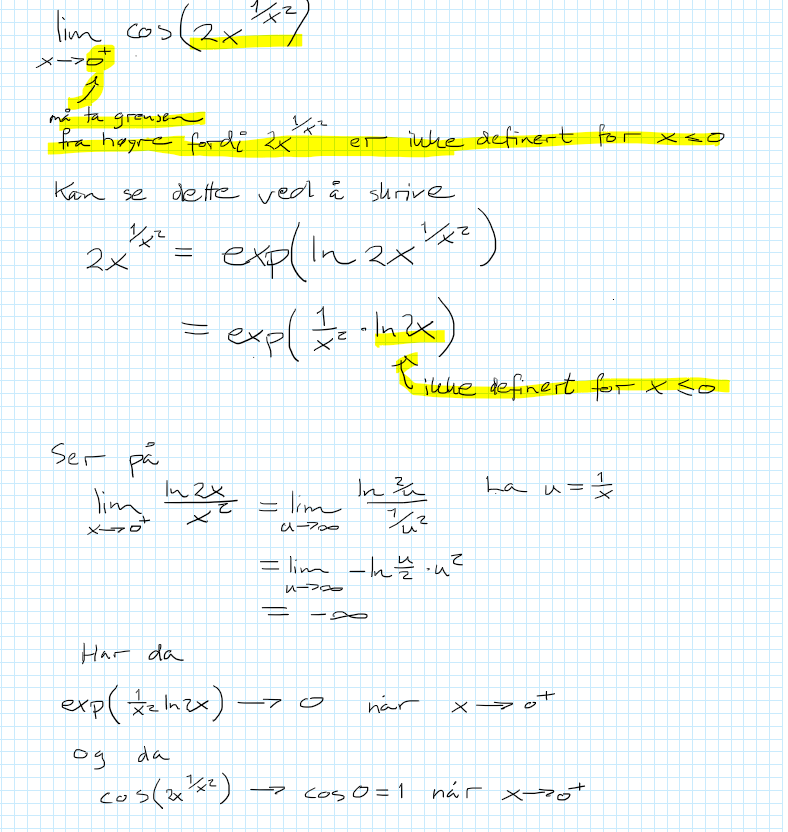 lim cos(2x^{1/x^2})
x→0^+
må ta grensen
fra høyre fordi 2x^{1/x^2} er ikke definert for x≤0
Kan se dette ved å skrive
2x^{1/x^2} = exp(ln 2x^{1/x^2})
= exp(1/x^2 · ln 2x)
ikke definert for x≤0
Ser på
lim_{x→0^+} ln 2x / x^2 = lim_{u→∞} ln 2/u / 1/u^2 La u = 1/x
= lim_{u→∞} -ln u/2 · u^2
= -∞
Har da
exp(1/x^2 ln 2x) → 0 når x → 0^+
og da
cos(2x^{1/x^2}) → cos 0 = 1 når x→0^+